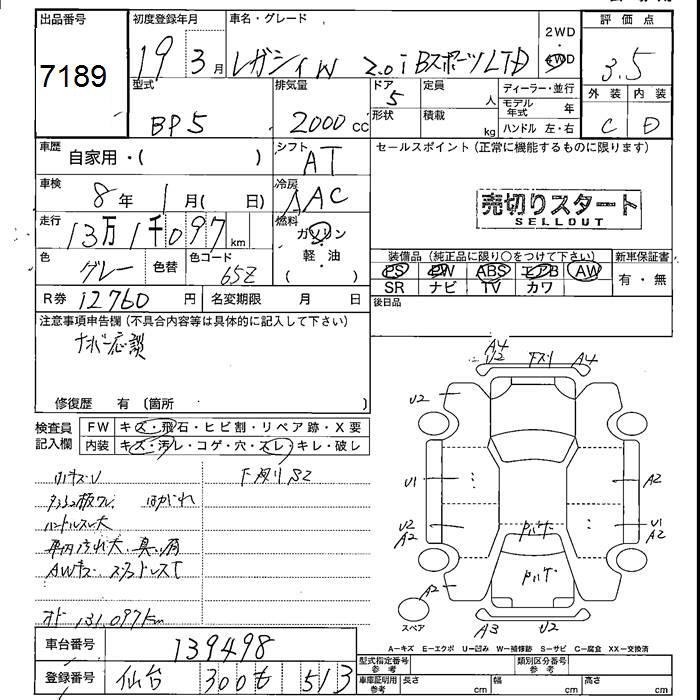 出品番号
7189
初度登録年月
19 3月
車名・グレード
レガシィW 2.0i Bスポーツ LTD
2WD
4WD
評価点
3.5
型式
BP5
排気量
2000 cc
ドア
5
形状
定員
人
積載
kg
ディーラー・並行
モデル年式 年
ハンドル 左・右
外装
C
内装
D
車歴
自家用・( )
シフト
AT
セールスポイント (正常に機能するものに限ります)
車検
8年 1月( 日)
冷房
AAC
売切りスタート
SELLOUT
走行
13万1千097 km
燃料
ガソリン
軽油
色
グレー
色替
色コード
65Z
装備品 (純正品に限り○をつけて下さい)
PS PW ABS エアB AW
SR ナビ TV カワ
新車保証書
有・無
R券 12760 円
名変期限 月 日
後日品
注意事項申告欄 (不具合内容等は具体的に記入して下さい)
ナンバー応談
修復歴 有 (箇所 )
検査員記入欄
FW キズ・飛石・ヒビ割・リペア跡・X要
内装 キズ・汚レ・コゲ・穴・スレ・キレ・破レ
下廻りS2
ハンドルスレ大
オド 131,097km
A4
U2
下スリ
A4
U2
U1
A2
U2
A2
U1
A2
A2
A3
U2
スペア
A－キズ E－エクボ U－凹み W－補修跡 S－サビ C－腐食 XX－交換済
車台番号
139498
登録番号
仙台 300 も 513
型式指定番号
参考
類別区分番号
参考
車庫証明用
参考
長さ cm
幅 cm
高さ cm